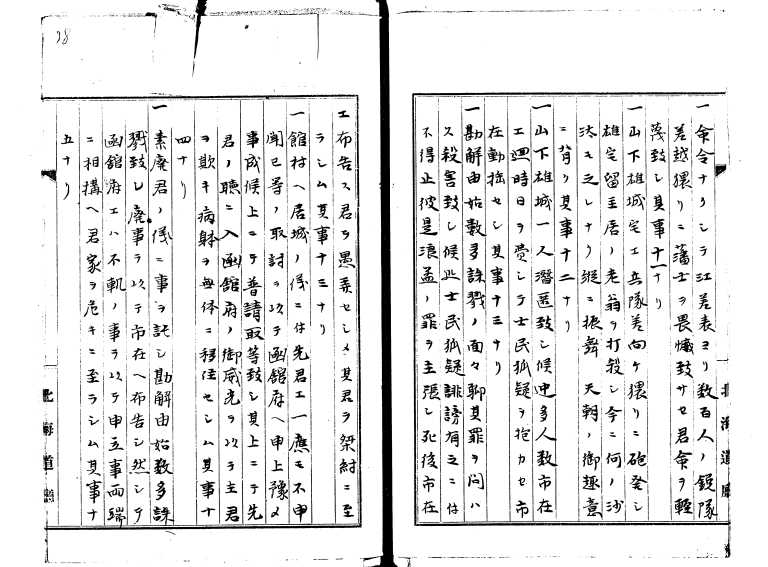 一命令ナクシテ江差表ヨリ数百人ノ銃隊
差越猥リニ藩士ヲ畏懾致サセ君命ヲ軽
蔑致シ其事十一ナリ
一山下雄城宅エ兵隊差向ケ猥リニ砲発シ
雄宅留主居ノ老翁ヲ打殺シ今ニ何ノ沙
汰モ之レナク縦ニ振舞 天朝ノ御趣意
ニ背ク其事十二ナリ
一山下雄城一人潜匿致シ候迚多人数市在
エ廻時日ヲ費シテ士民狐疑ヲ抱カセ市
在動揺セシ其事十三ナリ
一勘解由始数多誅戮ノ面々聊其罪ヲ問ハ
ス殺害致シ候迚士民狐疑誹謗有之ニ付
不得止彼是浪孟ノ罪ヲ主張シ死後市在
北海道廳
38
エ布告ス君ヲ愚弄セシメ其君ヲ桀紂ニ至
ラシム其事十三ナリ
一館村ヘ居城ノ儀ニ付先君エ一應モ不申
聞己等ノ取計ヲ以テ函館府ヘ申上豫メ
事成候上ニテ普請取等致シ其上ニテ先
君ノ聴ニ入函館府ノ御威光ヲ以テ主君
ヲ欺キ病躰ヲ無体ニ移住セシム其事十
四ナリ
一素廃君ノ儀ニ事ヲ託シ勘解由始数多誅
戮致シ廃事ヲ以テ市在ヘ布告シ然シテ
函館府エハ不軌ノ事ヲ以テ申立事両端
ニ相搆ヘ君家ヲ危キニ至ラシム其事十
五ナリ
北海道廳